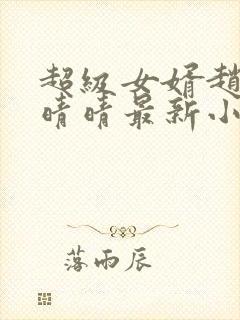 超级女婿赵
晴晴最新小
落雨辰